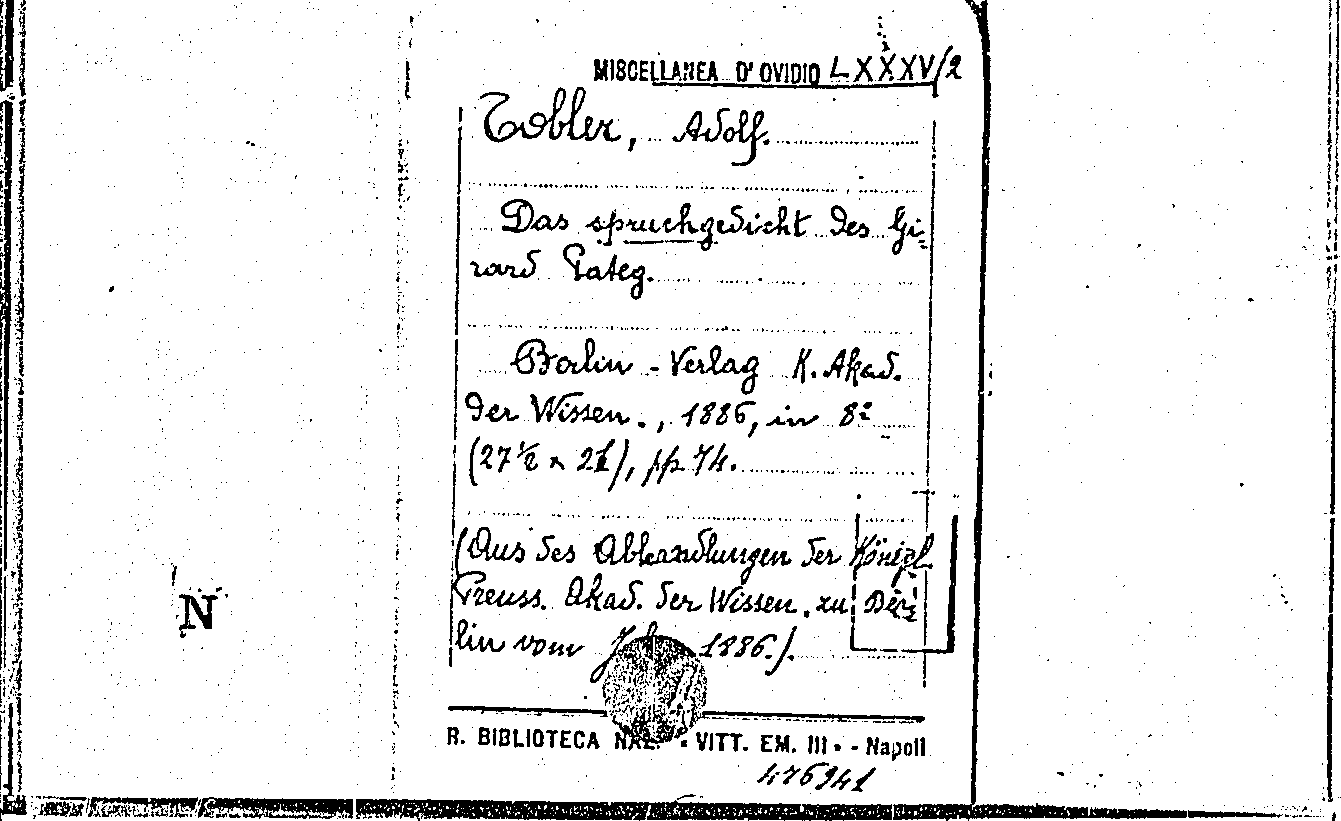 MISCELLANEA D'OVIDIO LXXXV/2
Tobler, Adolf.
Das spruchgedicht des Gi=
rard Pateg.
Berlin - Verlag K. Akad.
der Wissen., 1886, in 8º
(27 ½ x 21), pp. 74.
(Aus des Abhandlungen der Königl.
Preuss. Akad. der Wissen. zu Ber=
lin vom 1886.).
R. BIBLIOTECA NAZ. VITT. EM. III - Napoli
476941
N